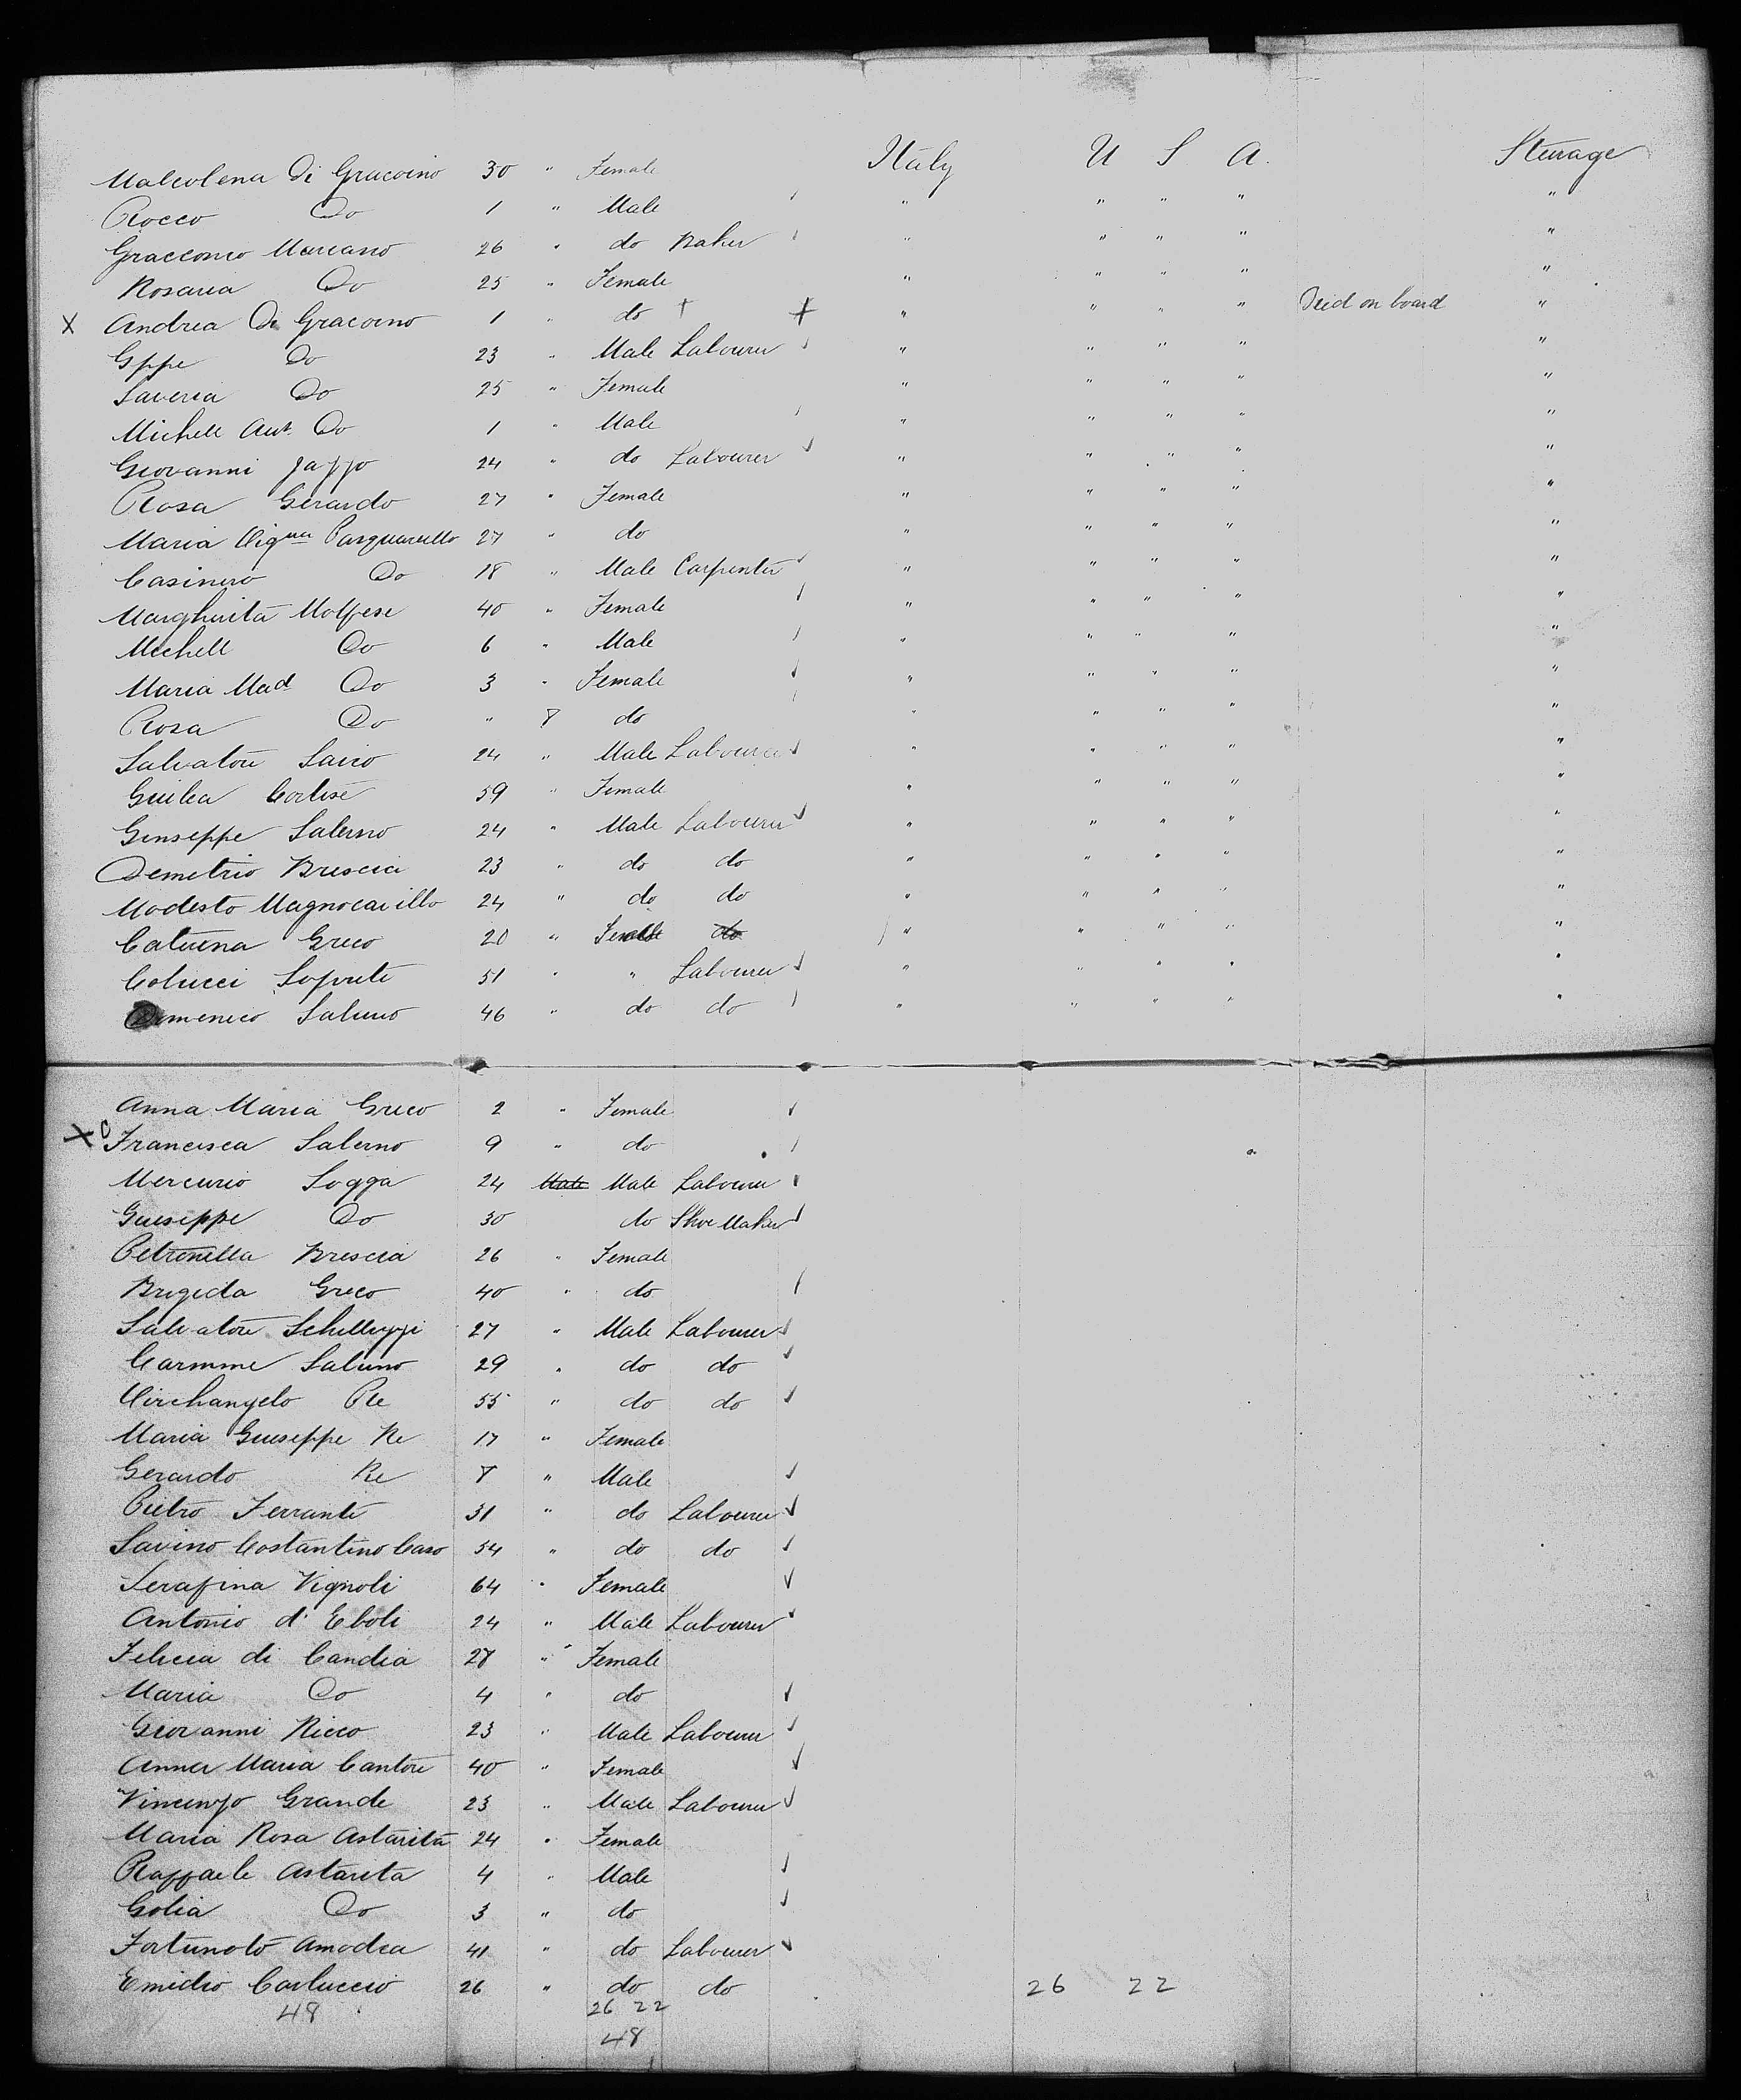 Malcolena Di Gracoino 30 " Female Italy U S A. Steerage
Rocco Do 1 " Male " " " " "
Gracconco Marcano 26 " do Baker " " " " "
Rosaria Do 25 " Female " " " " "
X Andrea Di Gracoino 1 " do + + " " " " Died on board "
Gppe Do 23 " Male Labourer " " " " "
Saveria Do 25 " Female " " " " "
Michele Ant. Do 1 " Male " " " " "
Giovanni Jappo 24 " do Labourer " " " " "
Rosa Gerardo 27 " Female " " " " "
Maria Pasquarello 27 " do " " " " "
Casimiro Do 18 " Male Carpenter " " " " "
Margherita Molfese 40 " Female " " " " "
Michele Do 6 " Male " " " " "
Maria Mad Do 3 " Female " " " " "
Rosa Do " 8 do " " " " "
Salvatore Sairo 24 " Male Labourer " " " " "
Guilea Cortese 59 " Female " " " " "
Genseppe Salerno 24 " Male Labourer " " " " "
Demetrio Brescia 23 " do do " " " " "
Modesto Magnocavillo 24 " do do " " " " "
Caterina Greco 20 " Female do " " " " "
Colucci Soponte 51 " " Labourer " " " " "
Domenico Salerno 46 " do do " " " " "
Anna Maria Greco 2 " Female
X Francesca Salerno 9 " do
Mercurio Sogga 24 Male Male Labourer
Guiseppe Do 30 do Shoe Maker
Petronella Brescia 26 " Female
Brigida Greco 40 " do
Salvatore Schelleyzi 27 " Male Labourer
Carmine Salerno 29 " do do
Archangelo Re 55 " do do
Maria Guiseppe Re 17 " Female
Gerardo Re 8 " Male
Pietro Ferrante 31 " do Labourer
Savino Costantino Caso 54 " do do
Serafina Vignoli 64 " Female
Antonio d'Eboli 24 " Male Labourer
Felicia di Candia 28 " Female
Maria Do 4 " do
Giovanni Ricco 23 " Male Labourer
Anna Maria Cantore 40 " Female
Vincenzo Grande 23 " Male Labourer
Maria Rosa Astarita 24 " Female
Raffaele Astarita 4 " Male
Golia Do 3 " do
Fortunato Amodea 41 " do Labourer
Emidio Carluccio 26 " do do 26 22
48 26 22
48